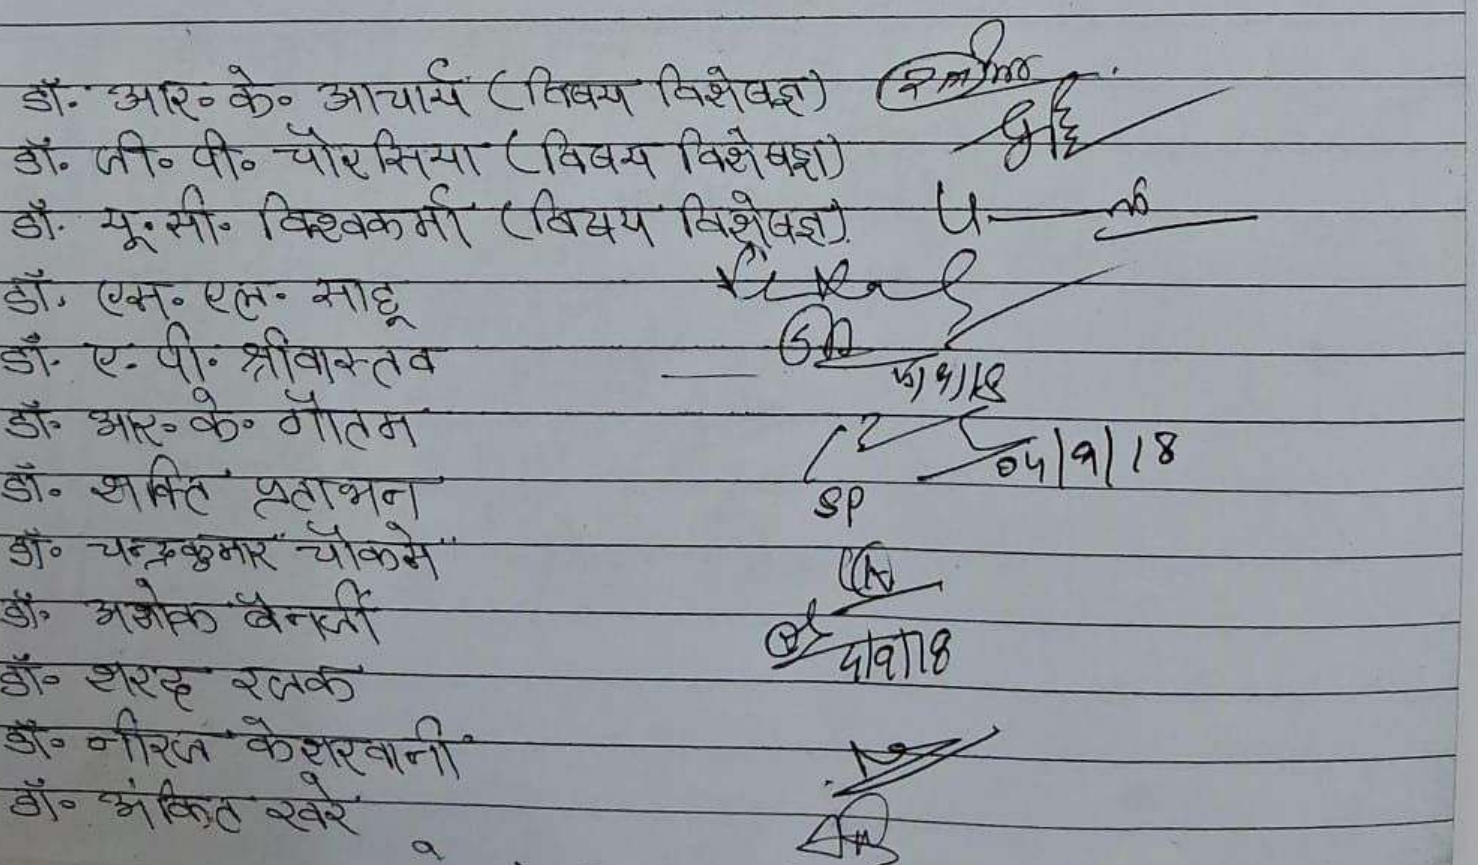 डॉ. आर. के. आचार्य (विषय विशेषज्ञ)
डॉ. जी. पी. चौरसिया (विषय विशेषज्ञ)
डॉ. यू. सी. विश्वकर्मा (विषय विशेषज्ञ)
डॉ. एस. एल. साहू
डॉ. ए. पी. श्रीवास्तव
डॉ. आर. के. गौतम
04/9/18
डॉ. शक्ति
SP
डॉ. चन्द्रकुमार चौकसे
डॉ. अशोक बैनर्जी
4/9/18
डॉ. शरद रजक
डॉ. नीरज केशरवानी
डॉ. अंकित खरे